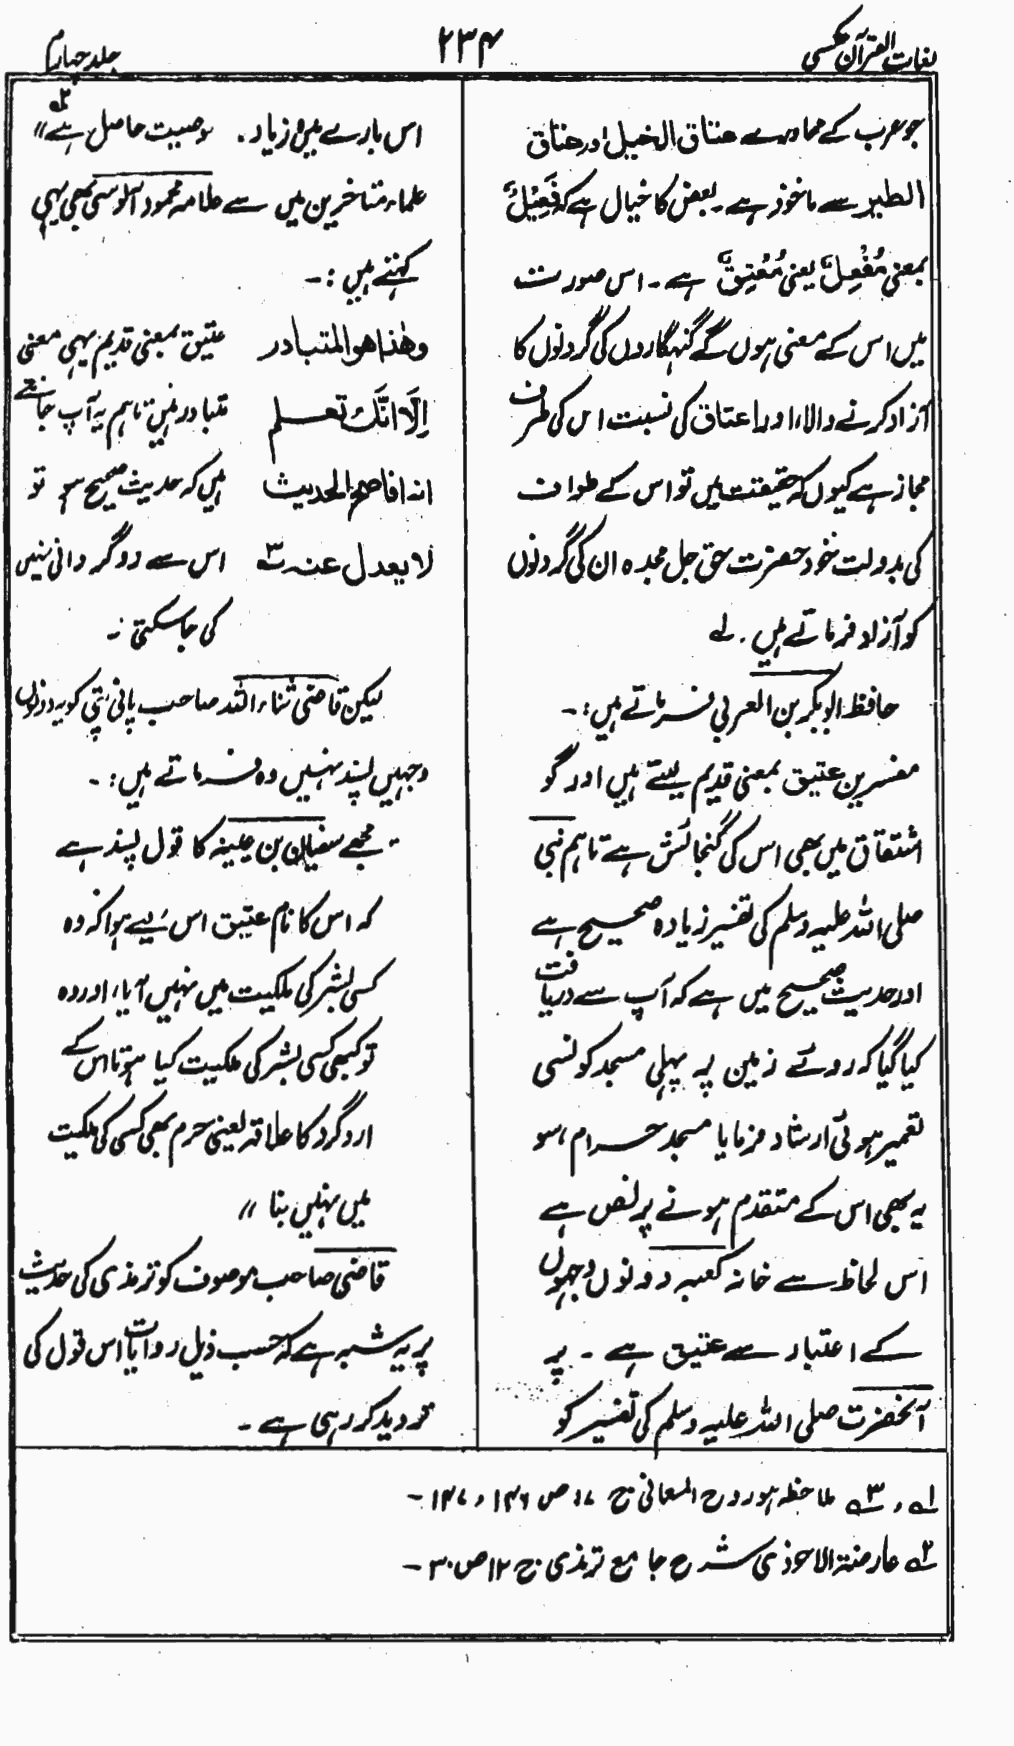 لغات القرآن عکسی
۲۳۴
جلد چہارم
جو عرب کے محاورے عتاق الخیل اور عتاق
الطیر سے ماخوذ ہے۔ بعض کا خیال ہے کہ فَعِیْلٌ
بمعنی مُفْعِلٌ یعنی مُعْتِقٌ ہے ۔ اس صورت
میں اس کے معنی ہوں گے گنہگاروں کی گردنوں کا
آزاد کرنے والا، اور اعتاق کی نسبت اس کی طرف
مجاز ہے کیوں کہ حقیقت میں تو اس کے طواف
کی بدولت خود حضرت حق جل مجدہ ان کی گردنوں
کو آزاد فرماتے ہیں ۔ لے
حافظ ابوبکر بن العربی فرماتے ہیں :۔
مفسرین عتیق بمعنی قدیم لیتے ہیں اور گو
اشتقاق میں بھی اس کی گنجائش ہے تاہم نبی
صلی اللہ علیہ وسلم کی تفسیر زیادہ صحیح ہے
اور حدیث صحیح میں ہے کہ آپ سے دریافت
کیا گیا کہ روئے زمین پر پہلی مسجد کونسی
تعمیر ہوئی ارشاد فرمایا مسجد حرام ، سو
یہ بھی اس کے متقدم ہونے پر نص ہے
اس لحاظ سے خانہ کعبہ دونوں وجہوں
کے اعتبار سے عتیق ہے ۔ پر
آنحضرت صلی اللہ علیہ وسلم کی تفسیر کو
اس بارے میں زیادہ خصوصیت حاصل ہے ،، ۲
علماء متاخرین میں سے علامہ محمود آلوسی بھی یہی
کہتے ہیں :۔
وھٰذا ھو المتبادر عتیق بمعنی قدیم یہی معنی
اِلَّا انَّکَ تعلم متبادر ہیں، تاہم یہ آپ جانتے
انہ اذا صح الحدیث ہیں کہ حدیث صحیح ہو تو
لا یعدل عنہ ۳ اس سے روگردانی نہیں
کی جا سکتی ۔
لیکن قاضی ثناء اللہ صاحب پانی پتی کو یہ دونوں
وجہیں پسند نہیں وہ فرماتے ہیں :۔
،، مجھے سفیان بن عیینہ کا قول پسند ہے
کہ اس کا نام عتیق اس لیے ہوا کہ وہ
کسی بشر کی ملکیت میں نہیں آیا، اور وہ
تو کبھی کسی بشر کی ملکیت کیا ہوتا اس کے
اردگرد کا علاقہ یعنی حرم بھی کسی کی ملکیت
میں نہیں بنا ،،
قاضی صاحب موصوف کو ترمذی کی حدیث
پر یہ شبہ ہے کہ حسب ذیل روایات اس قول کی
تردید کر رہی ہے ۔
۱، ۳ ملاحظہ ہو روح المعانی ج ۱۷ ص ۱۴۶ ، ۱۴۷ ۔
۲ عارضۃ الاحوذی شرح جامع ترمذی ج ۱۲ ص ۳۰ ۔